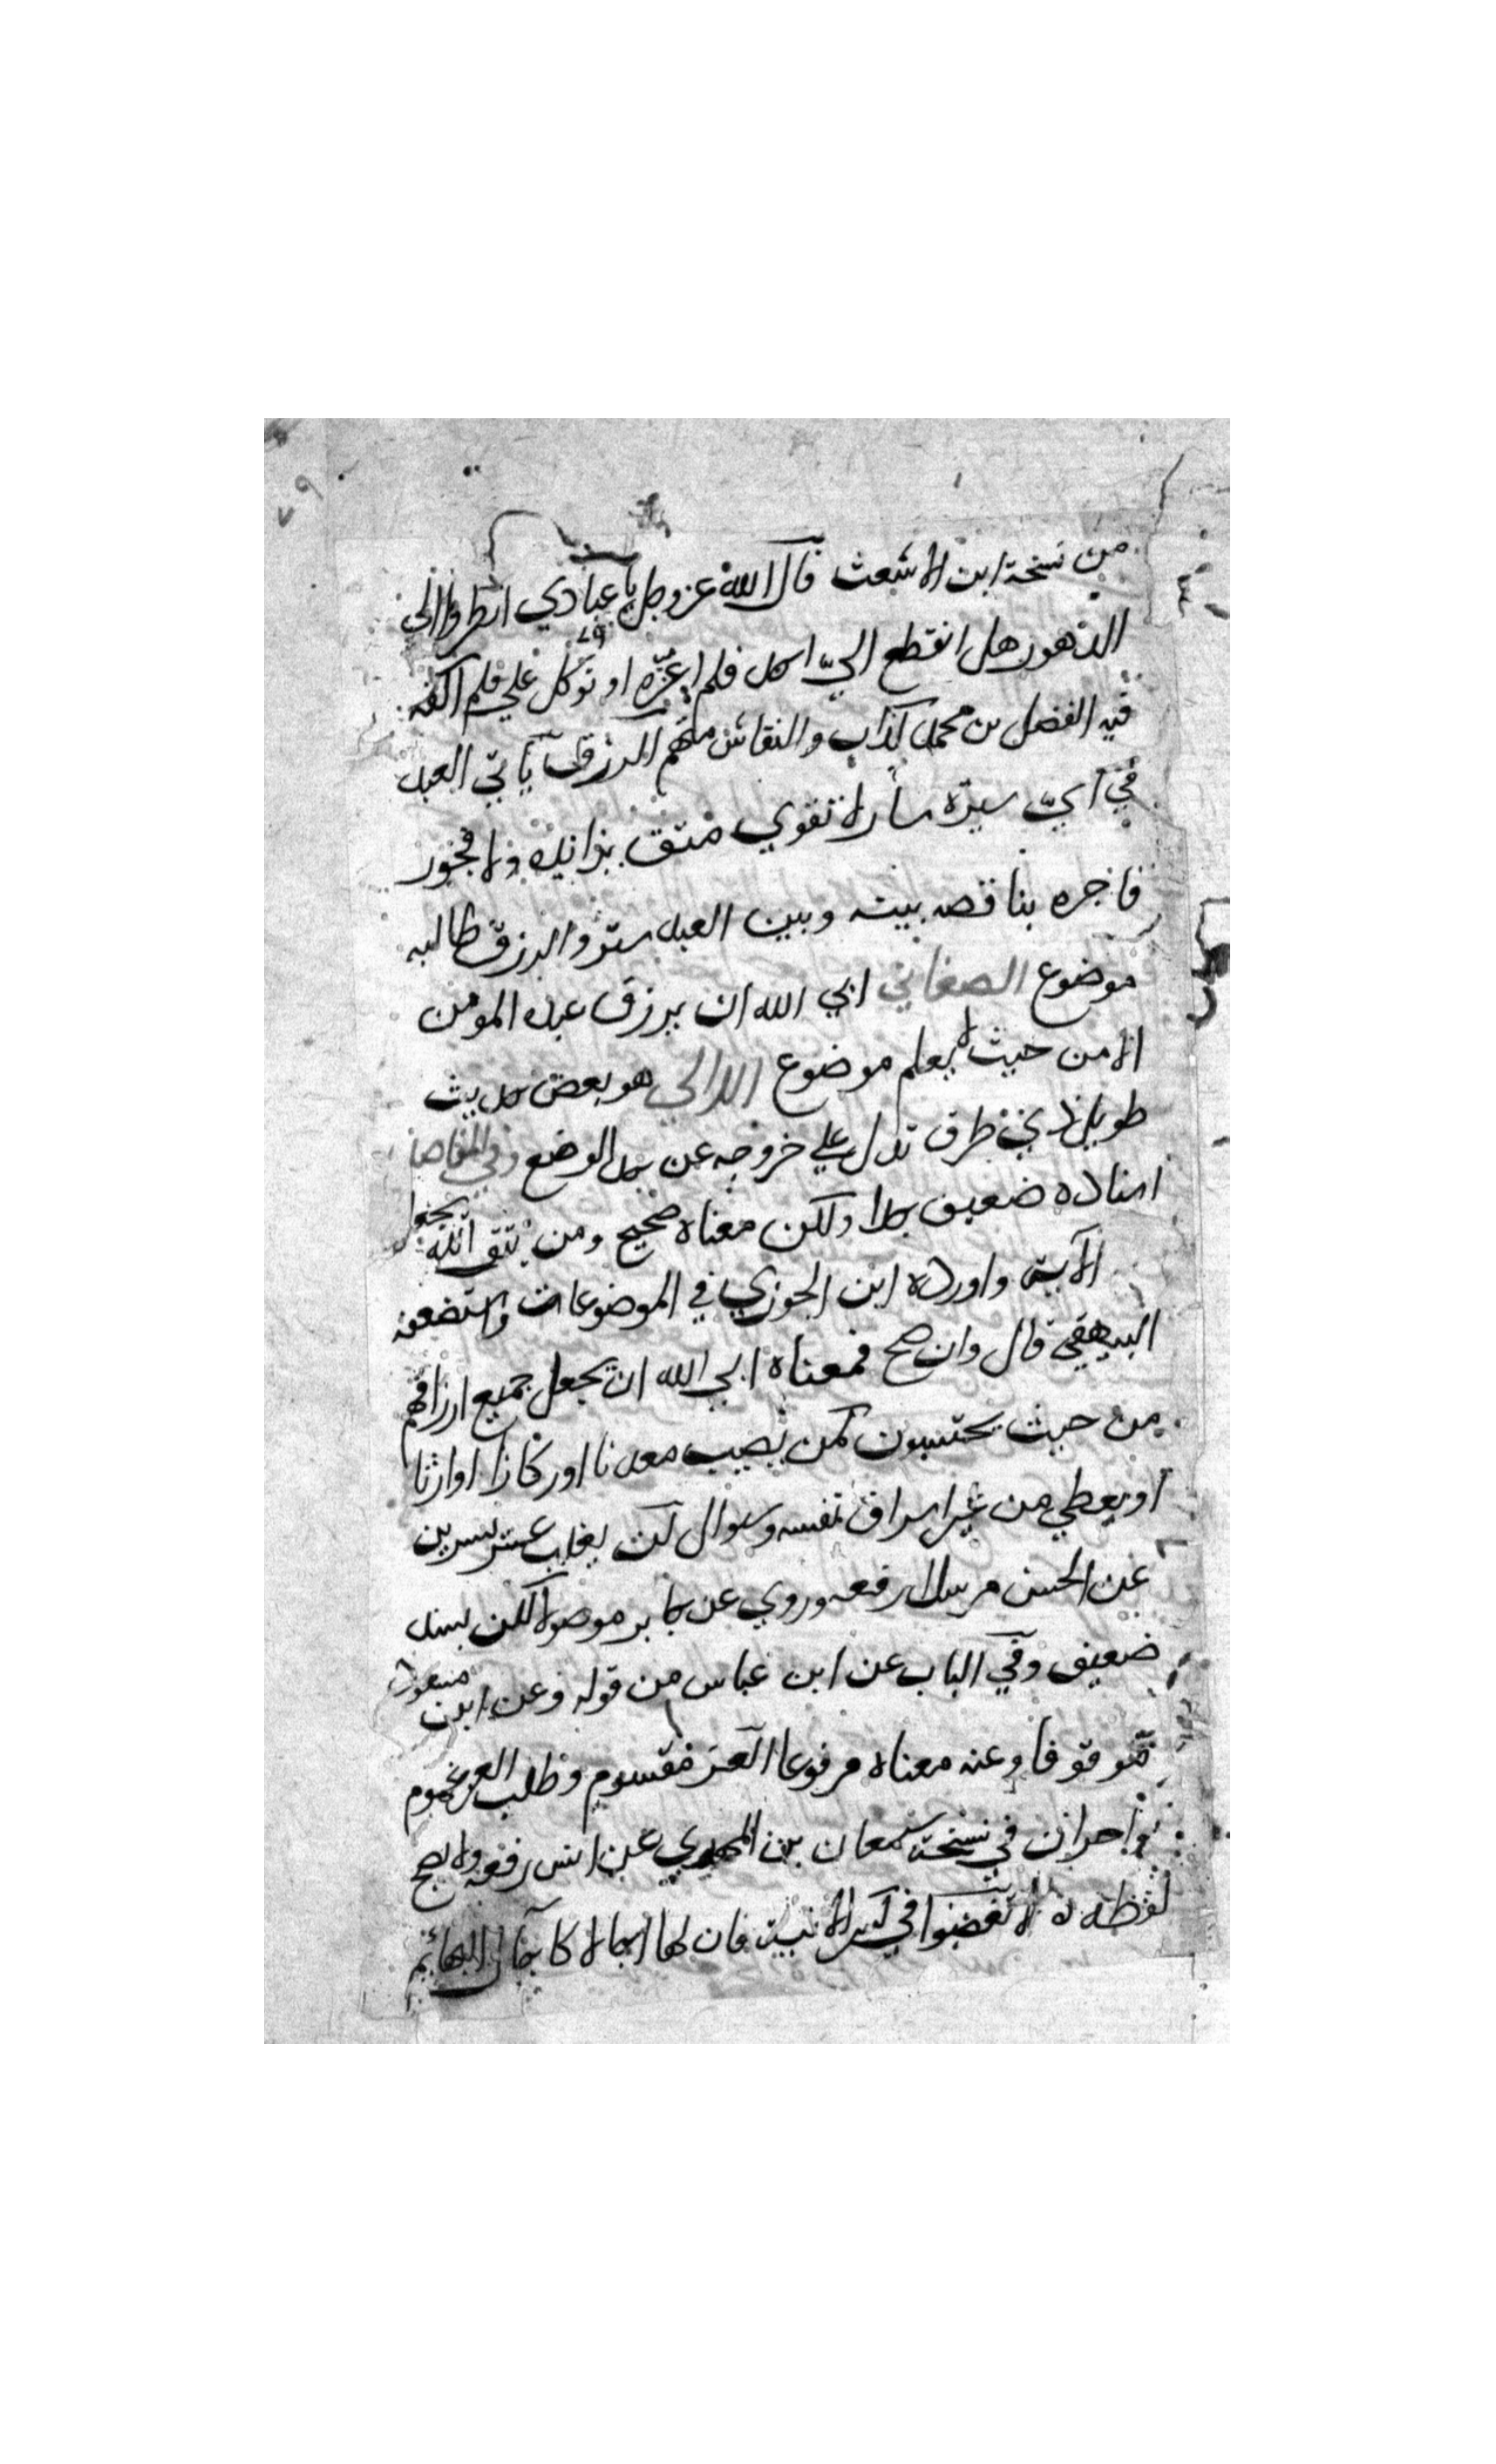 ٧٩
من نسخة ابن الاشعث قال الله عز وجل يا عبادي انظروا الي
الدهور هل انقطع اليّ احد فلم اعزه او توكل علي فلم اكفه
فيه الفضل بن محمد كذاب والنقاش متهم الرزق يأتي العبد
في أيّ سيرة سار لا تقوي متق بزائده ولا فجور
فاجره بناقصه بينه وبين العبد ستر والرزق طالبه
موضوع الصغاني ابي الله ان يرزق عبده المومن
الا من حيث لا يعلم موضوع اللالي هو بعض حديث
طويل ذي طرق تدل علي خروجه عن حد الوضع وفي المقاصد
اسناده ضعيف جدا ولكن معناه صحيح ومن يتق الله يجعل
الآية واورده ابن الجوزي في الموضوعات واستضعفه
البيهقي قال وان صح فمعناه ابي الله ان يجعل جميع ارزاقهم
من حيث يحتسبون كمن يصيب معدنا او ركازا او ارثا
او يعطي من غير اسراف نفسه وسوال لن يغلب عسر يسرين
عن الحسن مرسلا رفعه وروي عن جابر موصولا لكن بسند
ضعيف وفي الباب عن ابن عباس من قوله وعن ابن مسعود
موقوفا وعنه معناه مرفوعا العز مقسوم وطلب العز غموم
واحزان في نسخة سمعان بن المهدي عن انس رفعه ولا يصح
لفظه لا تغضبوا في كسر الانية فان لها اجالا كاجال البهائم